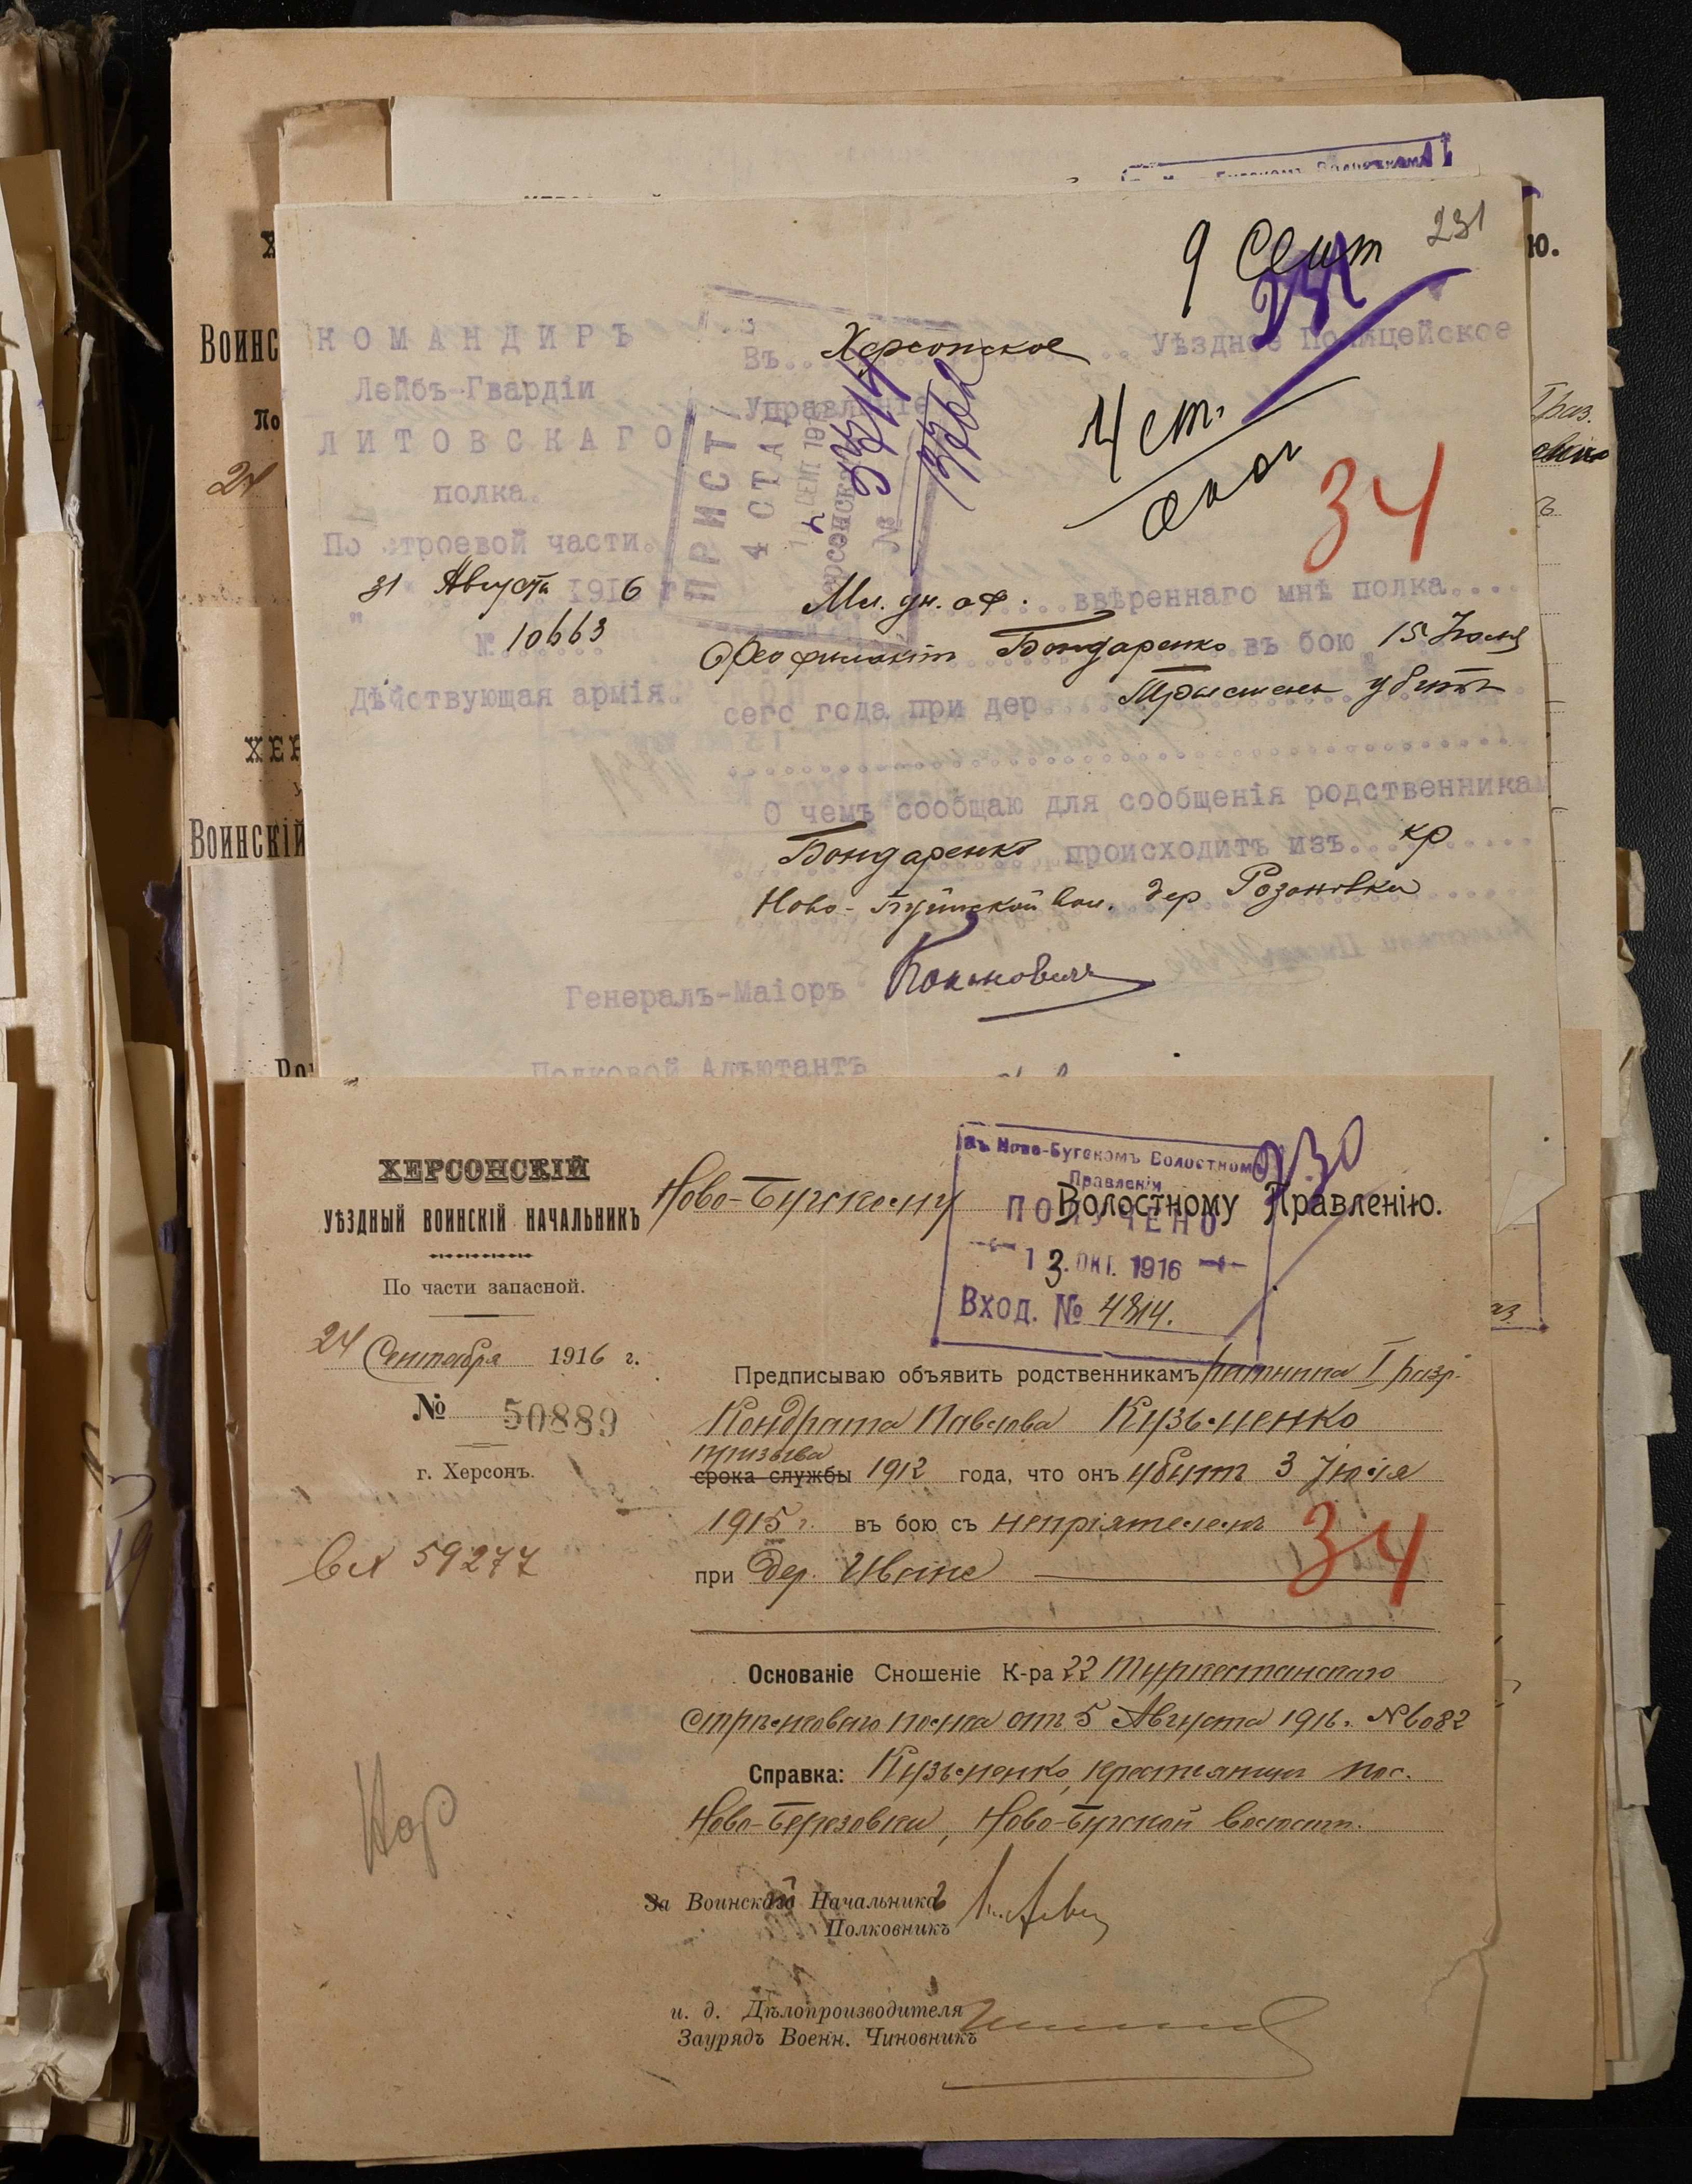 231
9 Сент
231
КОМАНДИРЪ
Лейбъ-Гвардіи
ЛИТОВСКАГО
полка.
По строевой части.
31 Августа 1916 г.
№ 10663
Дѣйствующая армія.
Въ Херсонское Уѣздное Полицейское
Управленіе
ПРИСТ
4 СТАН
СЕНТ 191
ХЕРСОНСК
№ 3762
4 ст.
34
Мл. ун. оф. ввѣреннаго мнѣ полка
Феофилактъ Бондаренко въ бою 15 Іюля
сего года при дер. Трыстень убитъ
О чемъ сообщаю для сообщенія родственникам
Бондаренко происходитъ изъ кр
Ново-Бугской вол. дер Розановки
Генералъ-Маіоръ
Полковой Адъютантъ
ХЕРСОНСКІЙ
УѢЗДНЫЙ ВОИНСКІЙ НАЧАЛЬНИКЪ
По части запасной.
24 Сентября 1916 г.
№ 50889
г. Херсонъ.
вх 59277
Ново-Бугскому Волостному Правленію.
Въ Ново-Бугскомъ Волостномъ
Правленіи
ПОЛУЧЕНО
13. ОКТ. 1916
Вход. № 4814.
230
Предписываю объявить родственникамъ ратника I разр.
Кондрата Павлова Кузьменко
призыва
срока службы 1912 года, что онъ убитъ 3 Іюля
1915 г. въ бою съ непріятелемъ
при дер.
34
Основаніе Сношеніе К-ра 22 Туркестанскаго
Стрѣлковаго полка отъ 5 Августа 1916. № 6082
Справка: Кузьменко, крестьянинъ пос.
Ново-Березовки, Ново-Бугской волости.
За Воинскій Начальникъ
Полковникъ
и. д. Дѣлопроизводителя
Заурядъ Воен. Чиновникъ
Воинс
По
24
ХЕР
Воинскій
ю.
I раз.